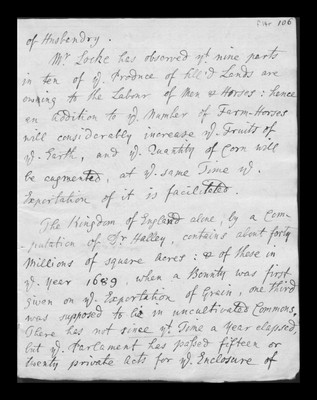 106
of Husbendry.
Mr. Locke has observed yt. nine parts
in ten of ye. Produce of till'd Lands are
owing to the Labour of Men & Horses: hence
an addition to ye. Number of Farm-Horses
will considerably increase ye. Fruits of
ye. Earth, and ye. Quantity of Corn will
be augmented, at ye. same Time ye.
Exportation of it is facilitated.
The Kingdom of England alone, by a Com-
putation of Dr Halley, contains about forty
Millions of square Acres: & of these in
ye. year 1689, when a Bounty was first
given on ye. Exportation of Grain, one third
was supposed to lie in uncultivated Commons.
There has not since yt. Time a Year elapsed,
but ye. Parlament has passed fifteen or
twenty private Acts for ye. Enclosure of